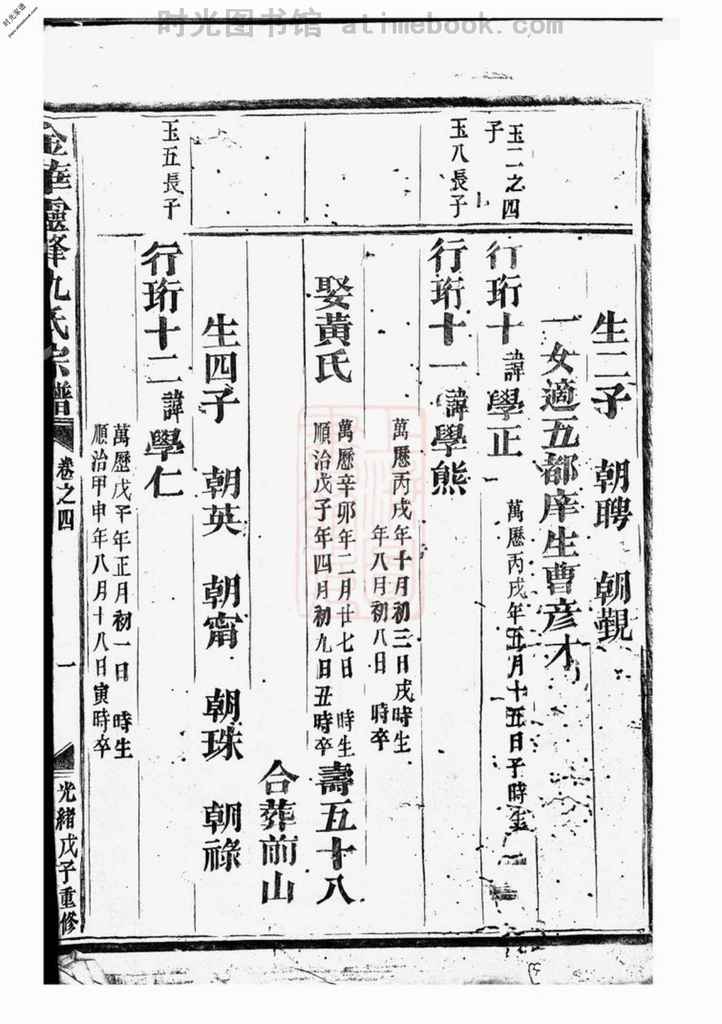 时光图书馆 atimebook.com
生二子 朝聘 朝覲
一女適五都庠生曹彦才
玉二之四子
行珩十諱學正 萬曆丙戌年五月十五日子時生
玉八長子
行珩十一諱學熊
萬曆丙戌年十月初三日戌時生
年八月初八日 時卒
娶黃氏
萬曆辛卯年二月廿七日 時生
順治戊子年四月初九日丑時卒
壽五十八
合葬前山
生四子 朝英 朝甯 朝珠 朝祿
玉五長子
行珩十二諱學仁
萬曆戊子年正月初一日 時生
順治甲申年八月十八日寅時卒
金華靈峰仇氏宗譜 卷之四 一 光緒戊子重修